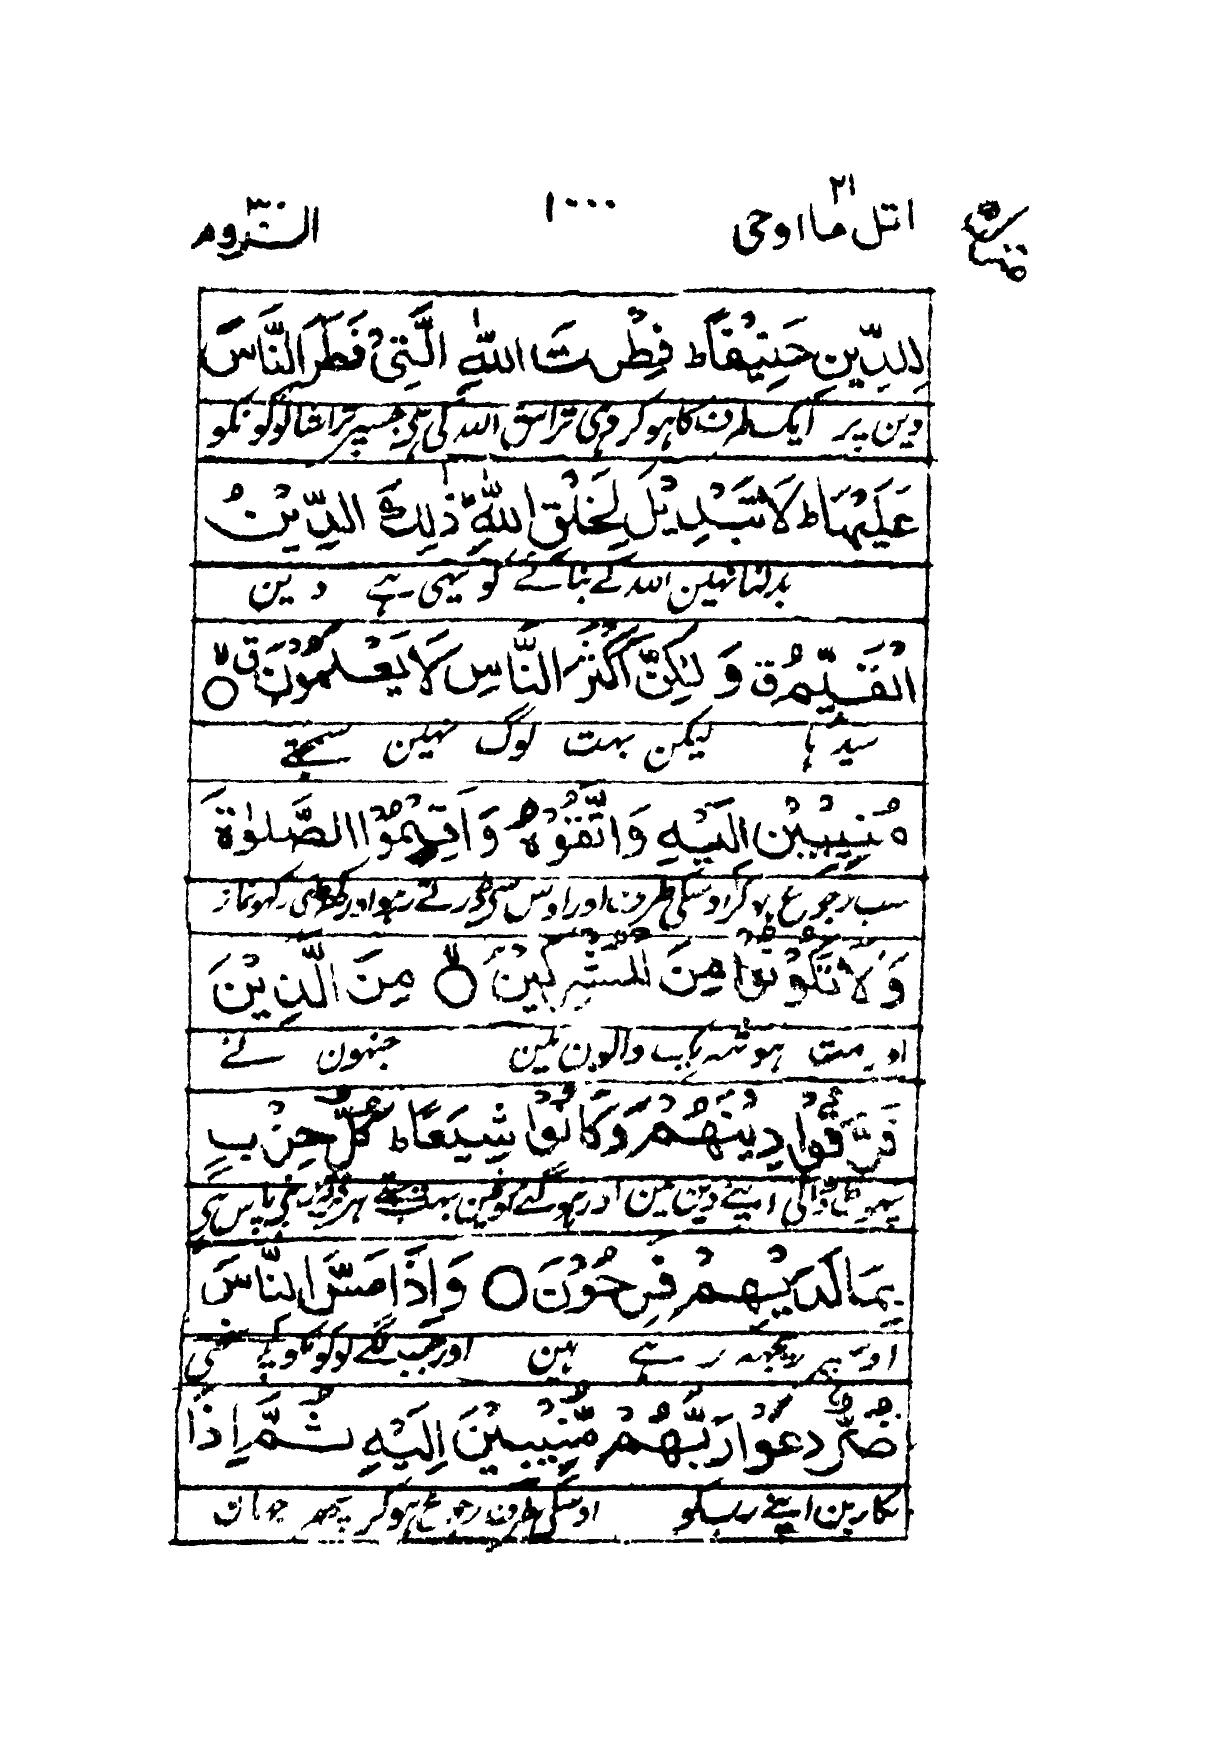 اتل ما اوحی ٢١ ١٠٠٠ الروم ٣٠
لِلدِّيْنِ حَنِيْفًا ط فِطْرَتَ اللّٰهِ الَّتِيْ فَطَرَ النَّاسَ
دین پر ایک طرف کا ہو کر وہی تراش اللہ کی جسپر تراشا لوگونکو
عَلَيْهَا ط لَا تَبْدِيْلَ لِخَلْقِ اللّٰهِ ط ذٰلِكَ الدِّيْنُ
بدلنا نہین اللہ کے بنائے کو یہی ہے دین
الْقَيِّمُ ق وَلٰكِنَّ اَكْثَرَ النَّاسِ لَا يَعْلَمُوْنَ ق ○
سیدہا لیکن بہت لوگ نہین سمجہتے
مُنِيْبِيْنَ اِلَيْهِ وَاتَّقُوْهُ وَاَقِيْمُوا الصَّلٰوةَ
سب رجوع ہو کر اوسکی طرف اور اوس سی ڈرتے رہو اور کھڑی رکہو نماز
وَلَا تَكُوْنُوْا مِنَ الْمُشْرِكِيْنَ ○ مِنَ الَّذِيْنَ
اور مت ہو شریک والون مین جنہون نے
فَرَّقُوْا دِيْنَهُمْ وَكَانُوْا شِيَعًا ط كُلُّ حِزْبٍ
پھوٹ ڈالی اپنے دین مین اور ہوگئے بہت ہر فرقہ پاس ہی
بِمَا لَدَيْهِمْ فَرِحُوْنَ ○ وَاِذَا مَسَّ النَّاسَ
اوسپر ریجہہ رہے ہین اور جب لگے لوگونکو
ضُرٌّ دَعَوْا رَبَّهُمْ مُّنِيْبِيْنَ اِلَيْهِ ثُمَّ اِذَا
پکارین اپنے ربکو اوسکی طرف رجوع ہو کر پھر جہان